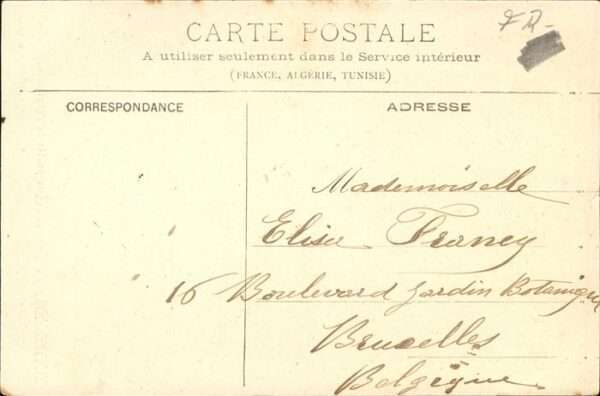 CARTE POSTALE
A utiliser seulement dans le Service intérieur
(FRANCE, ALGÉRIE, TUNISIE)
CORRESPONDANCE
ADRESSE
Mademoiselle
Elisa Franey
16 Boulevard Jardin Botanique
Bruxelles
Belgique